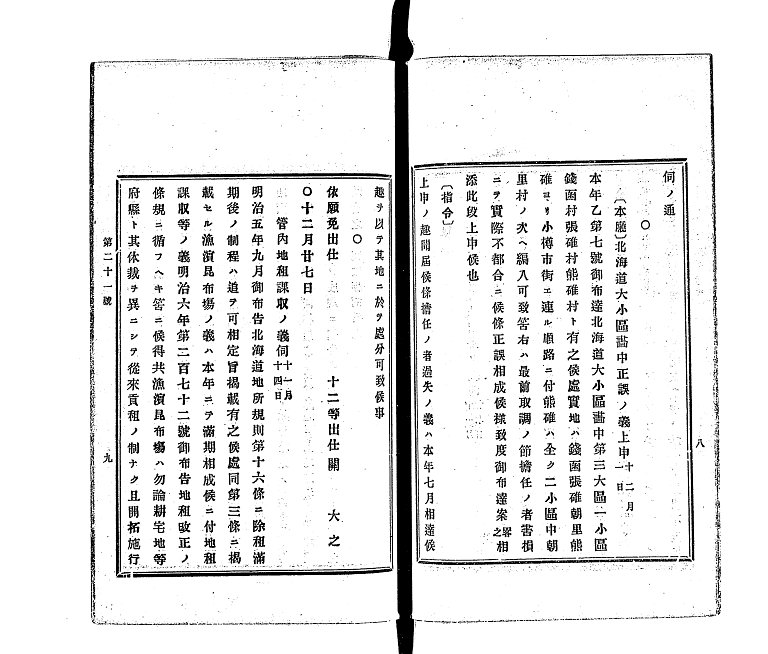 伺ノ通
〇
〔本廳〕北海道大小區畵中正誤ノ義上申十二月一日
本年乙第七號御布達北海道大小區畵中第三大區一小區
錢函村張碓村熊碓村ト有之候處實地ハ錢函張碓朝里熊
碓ヨリ小樽市街エ連ル順路ニ付熊碓ハ全ク二小區中朝
里村ノ次ヘ編入可致筈右ハ最前取調ノ節擔任ノ者書損
ニヲ實際不都合ニ候條正誤相成候樣致度御布達案畧之相
添此段上申候也
〔指令〕
上申ノ趣聞屆候條擔任ノ者過失ノ義ハ本年七月相達候
八
趣ヲ以テ其地ニ於ヲ處分可致候事
〇
依願免出仕 十二等出仕關 大之
〇十二月廿七日
管內地租課取ノ義伺十一月十四日
明治五年九月御布告北海道地所規則第十六條ニ除租滿
期後ノ制程ハ追ヲ可相定旨揭載有之候處同第三條ニ揭
載セル漁濱昆布場ノ義ハ本年ニテ滿期相成候ニ付地租
課取等ノ義明治六年第二百七十二號御布告地租改正ノ
條規ニ循フヘキ筈ニ候得共漁濱昆布場ハ勿論耕宅地等
府縣ト其体裁ヲ異ニシテ從來貢租ノ制ナク且開拓施行
第二十一號
九